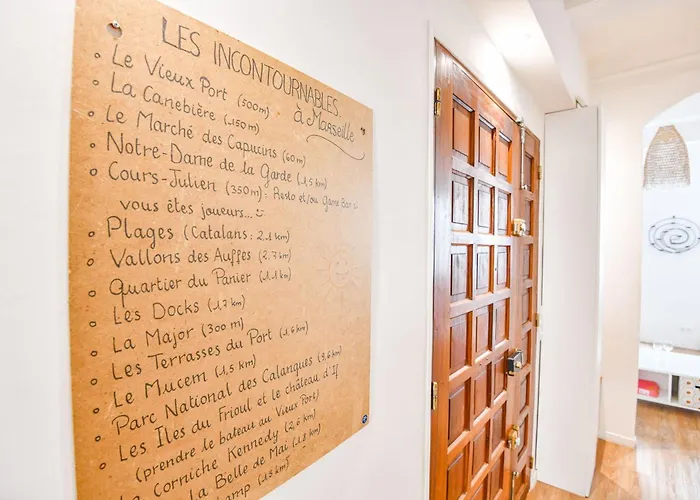 LES INCONTOURNABLES
à MARSEILLE
Le Vieux Port (500m)
La Canebière (150m)
Le Marché des Capucins (60m)
Notre-Dame de la Garde (1,5 km)
Cours-Julien (350m): Resto et/ou Game Bar si
vous êtes joueurs...
Plages (Catalans: 2.1 km)
Vallons des Auffes (2,7 km)
Quartier du Panier (1.1 km)
Les Docks (1,7 km)
La Major (300 m)
Les Terrasses du Port (1,6 km)
Le Mucem (1,5 km)
Parc National des Calanques (9,6 km)
Les Îles du Frioul et le château d'If
(prendre le bateau au Vieux Port)
La Corniche Kennedy (2,6 km)
la Belle de Mai (1.8 km)
(1.3 km)